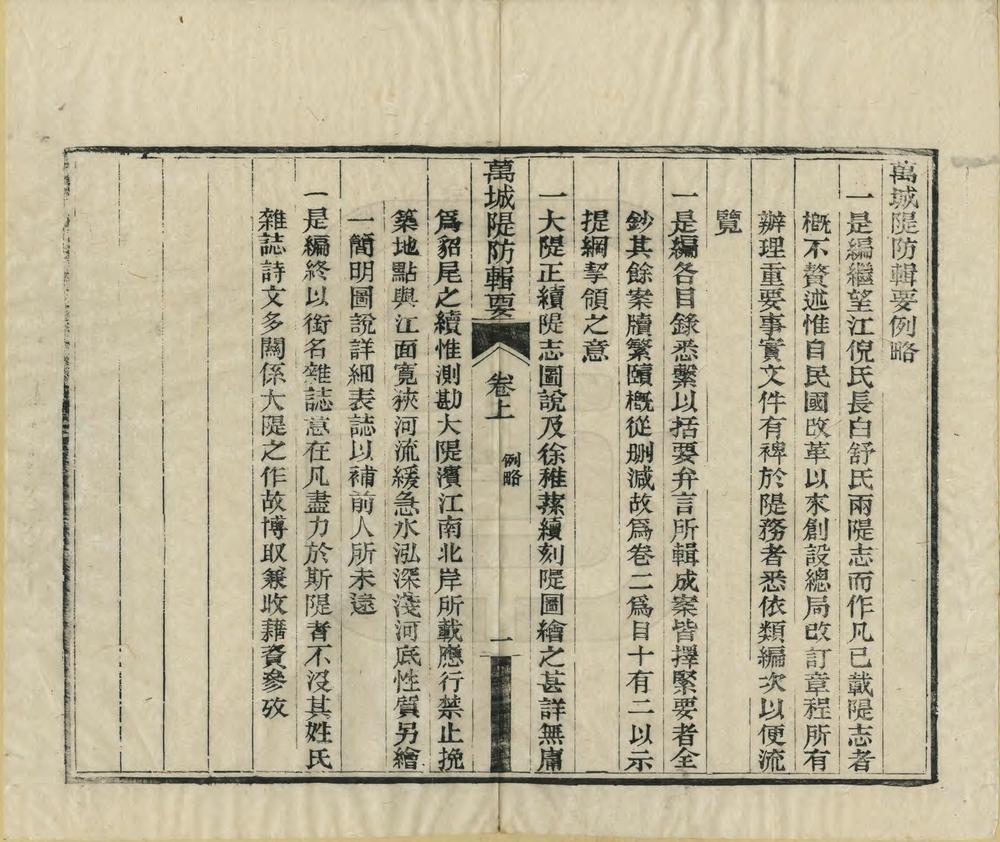 萬城隄防輯要例略
一是編繼望江倪氏長白舒氏兩隄志而作凡已載隄志者
槪不贅述惟自民國改革以來創設總局改訂章程所有
辦理重要事實文件有裨於隄務者悉依類編次以便流
覽
一是編各目錄悉繫以括要弁言所輯成案皆擇緊要者全
鈔其餘案牘繁賾槪從刪減故爲卷二爲目十有二以示
提綱挈領之意
一大隄正續隄志圖說及徐稚蓀續刻隄圖繪之甚詳無庸
萬城隄防輯要
卷上
例略
一
爲貂尾之續惟測勘大隄濱江南北岸所載應行禁止挽
築地點與江面寬狹河流緩急水泓深淺河底性質另繪
一簡明圖說詳細表誌以補前人所未逮
一是編終以銜名雜誌意在凡盡力於斯隄者不沒其姓氏
雜誌詩文多關係大隄之作故博取兼收藉資參攷